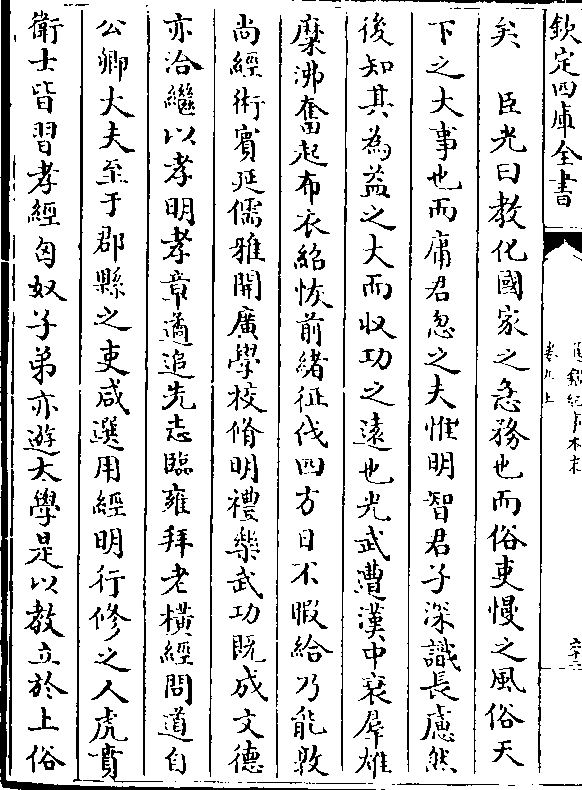 欽定四庫全書
卷九上
矣　臣光曰教化國家之急務也而俗吏慢之風俗天
下之大事也而庸君忽之夫惟明智君子深識長慮然
後知其為益之大而收功之遠也光武遭漢中衰羣雄
糜沸奮起布衣紹恢前緒征伐四方日不暇給乃能敦
尚經術賓延儒雅開廣學校脩明禮樂武功既成文德
亦洽繼以孝明孝章遹追先志臨雍拜老橫經問道自
公卿大夫至于郡縣之吏咸選用經明行修之人虎賁
衛士皆習孝經匈奴子弟亦遊太學是以教立於上俗